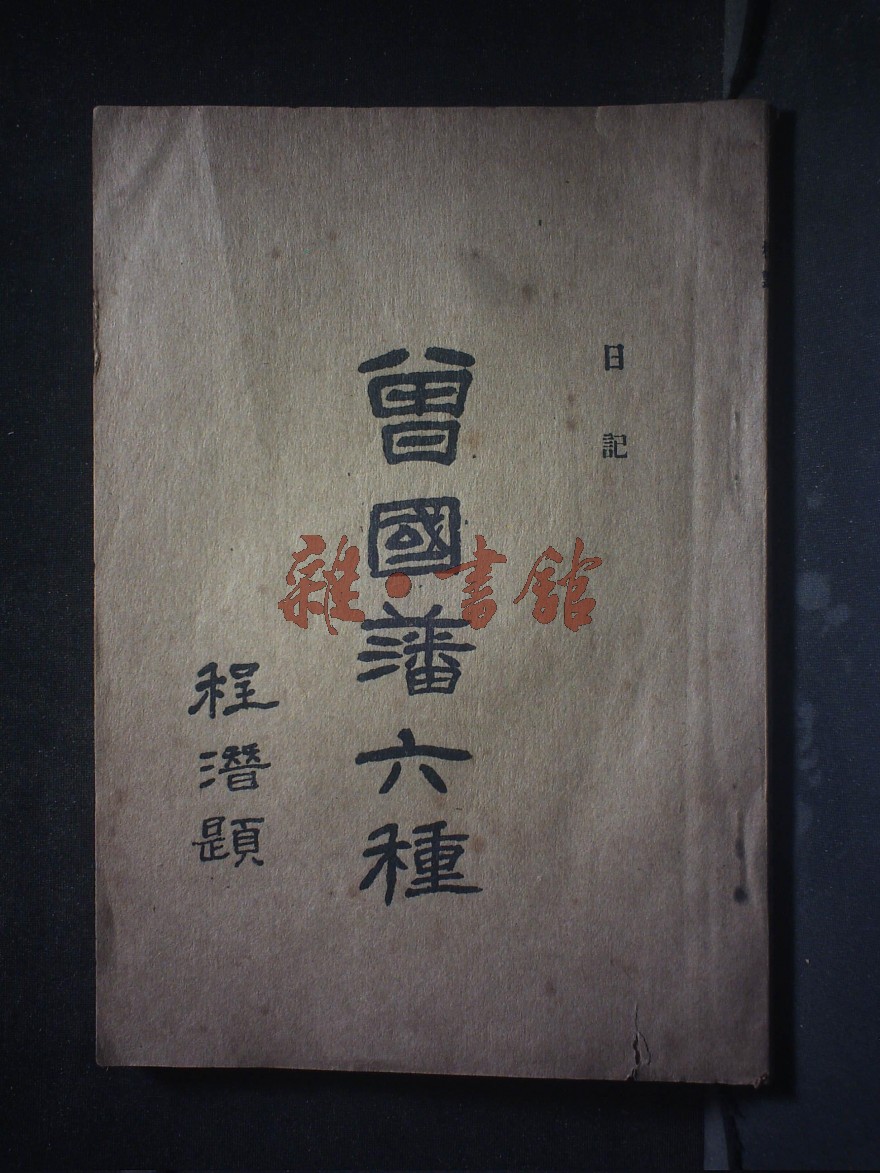 日記
曾國藩六種
程潛題
雜·書館